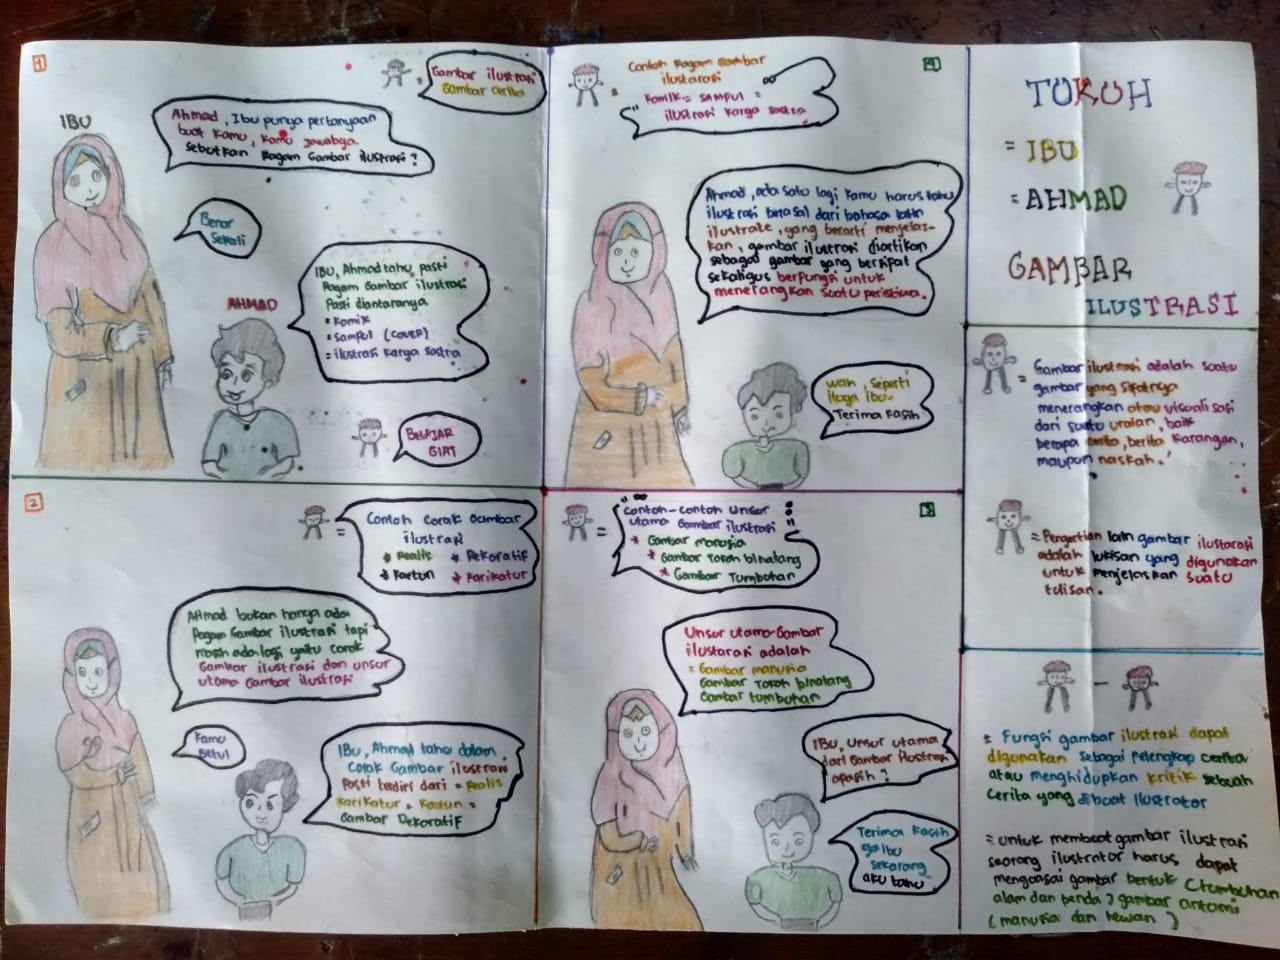 1
IBU
Ahmad, Ibu punya pertanyaan
buat kamu, kamu jawabya.
Sebutkan Ragam Gambar ilustrasi?
=
Gambar ilustrasi
Gambar cerita
Benar
Sekali
AHMAD
IBU, Ahmad tahu, pasti
Ragam Gambar ilustrasi
Pasti diantaranya
= Komik
= Sampul (COVER)
= ilustrasi karya sastra
BELAJAR
GIAT
2
=
Contoh Corak Gambar
ilustrasi
* Realis * Dekoratif
* Kartun * Karikatur
Ahmad bukan hanya ada
Ragam Gambar ilustrasi tapi
masih ada lagi yaitu corak
Gambar ilustrasi dan unsur
utama Gambar ilustrasi
Kamu
Betul
IBU, Ahmad tahu dalam
Corak Gambar ilustrasi
Pasti terdiri dari = Realis
Karikatur = Kartun =
Gambar Dekoratif
3
=
"Contoh-contoh Unsur
utama Gambar ilustrasi"
* Gambar manusia
* Gambar Tokoh binatang
* Gambar Tumbuhan
Unsur utama Gambar
ilustarasi adalah
= Gambar manusia
Gambar Tokoh binatang
Gambar tumbuhan
IBU, Unsur utama
dari Gambar ilustrasi
apasih?
Terima kasih
ya ibu
sekarang
aku tahu
4
=
Contoh Ragam Gambar
ilustarasi
" Komik = SAMPUL =
ilustrasi Karya Sastra
Ahmad, ada satu lagi kamu harus tahu
ilustrasi berasal dari bahasa latin
illustrate, yang berarti menjelas-
kan, gambar ilustrasi diartikan
sebagai gambar yang bersipat
sekaligus berfungsi untuk
menerangkan suatu peristiwa.
wah, seperti
itu ya ibu.
Terima Kasih
TOKOH
= IBU
= AHMAD
GAMBAR
ILUSTRASI
= Gambar ilustrasi adalah suatu
gambar yang sifatnya
menerangkan atau visualisasi
dari suatu uraian, baik
berapa cerita, berita karangan,
maupun naskah.
= Pengertian lain gambar ilustarasi
adalah lukisan yang digunakan
untuk menjelaskan suatu
tulisan.
= Fungsi gambar ilustrasi dapat
digunakan sebagai pelengkap cerita
atau menghidupkan kritik sebuah
cerita yang dibuat ilustrator
= untuk membuat gambar ilustrasi
seorang ilustrator harus dapat
menguasai gambar bentuk (tumbuhan
alam dan benda) gambar antomi
(manusia dan hewan)